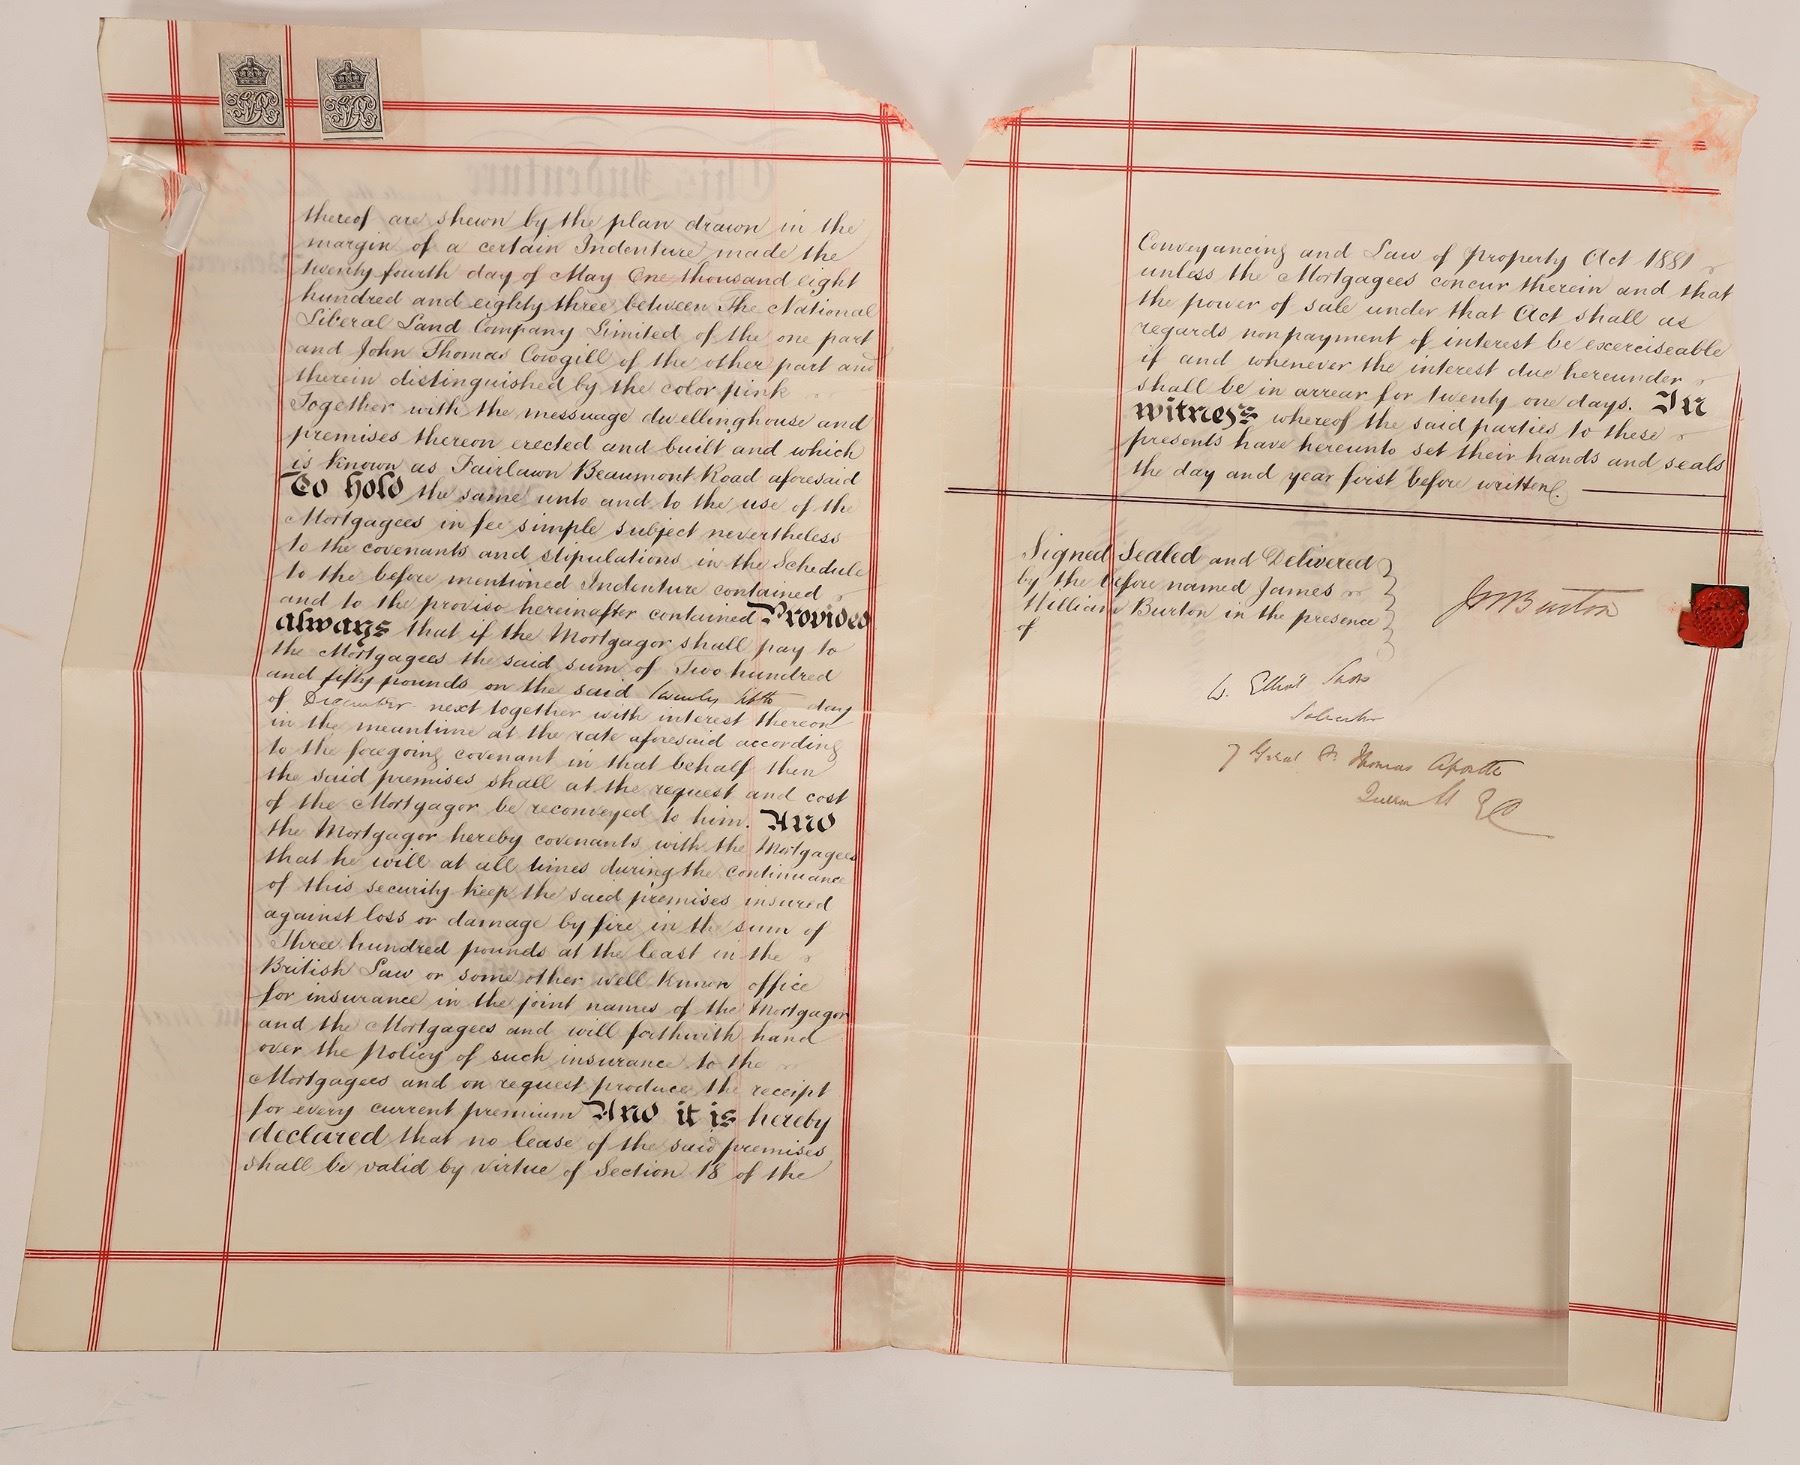 thereof are shewn by the plan drawn in the
margin of a certain Indenture made the
twenty fourth day of May One thousand eight
hundred and eighty three between The National
Liberal Land Company Limited of the one part
and John Thomas Cowgill of the other part and
therein distinguished by the color pink
Together with the messuage dwellinghouse and
premises thereon erected and built and which
is known as Fairlawn Beaumont Road aforesaid
To hold the same unto and to the use of the
Mortgagees in fee simple subject nevertheless
to the covenants and stipulations in the Schedule
to the before mentioned Indenture contained
and to the proviso hereinafter contained Provided
always that if the Mortgagor shall pay to
the Mortgagees the said sum of Two hundred
and fifty pounds on the said twenty fifth day
of December next together with interest thereon
in the meantime at the rate aforesaid according
to the foregoing covenant in that behalf then
the said premises shall at the request and cost
of the Mortgagor be reconveyed to him. And
the Mortgagor hereby covenants with the Mortgagees
that he will at all times during the continuance
of this security keep the said premises insured
against loss or damage by fire in the sum of
Three hundred pounds at the least in the
British Law or some other well known office
for insurance in the joint names of the Mortgagor
and the Mortgagees and will forthwith hand
over the Policy of such insurance to the
Mortgagees and on request produce the receipt
for every current premium And it is hereby
declared that no lease of the said premises
shall be valid by virtue of Section 18 of the
Conveyancing and Law of Property Act 1881
unless the Mortgagees concur therein and that
the power of sale under that Act shall as
regards nonpayment of interest be exerciseable
if and whenever the interest due hereunder
shall be in arrear for twenty one days. In
witness whereof the said parties to these
presents have hereunto set their hands and seals
the day and year first before written.
Signed Sealed and Delivered
by the before named James
William Burton in the presence
of
JW Burton
Solicitor
7 Great St. Thomas Apostle
Queen St EC
This Indenture